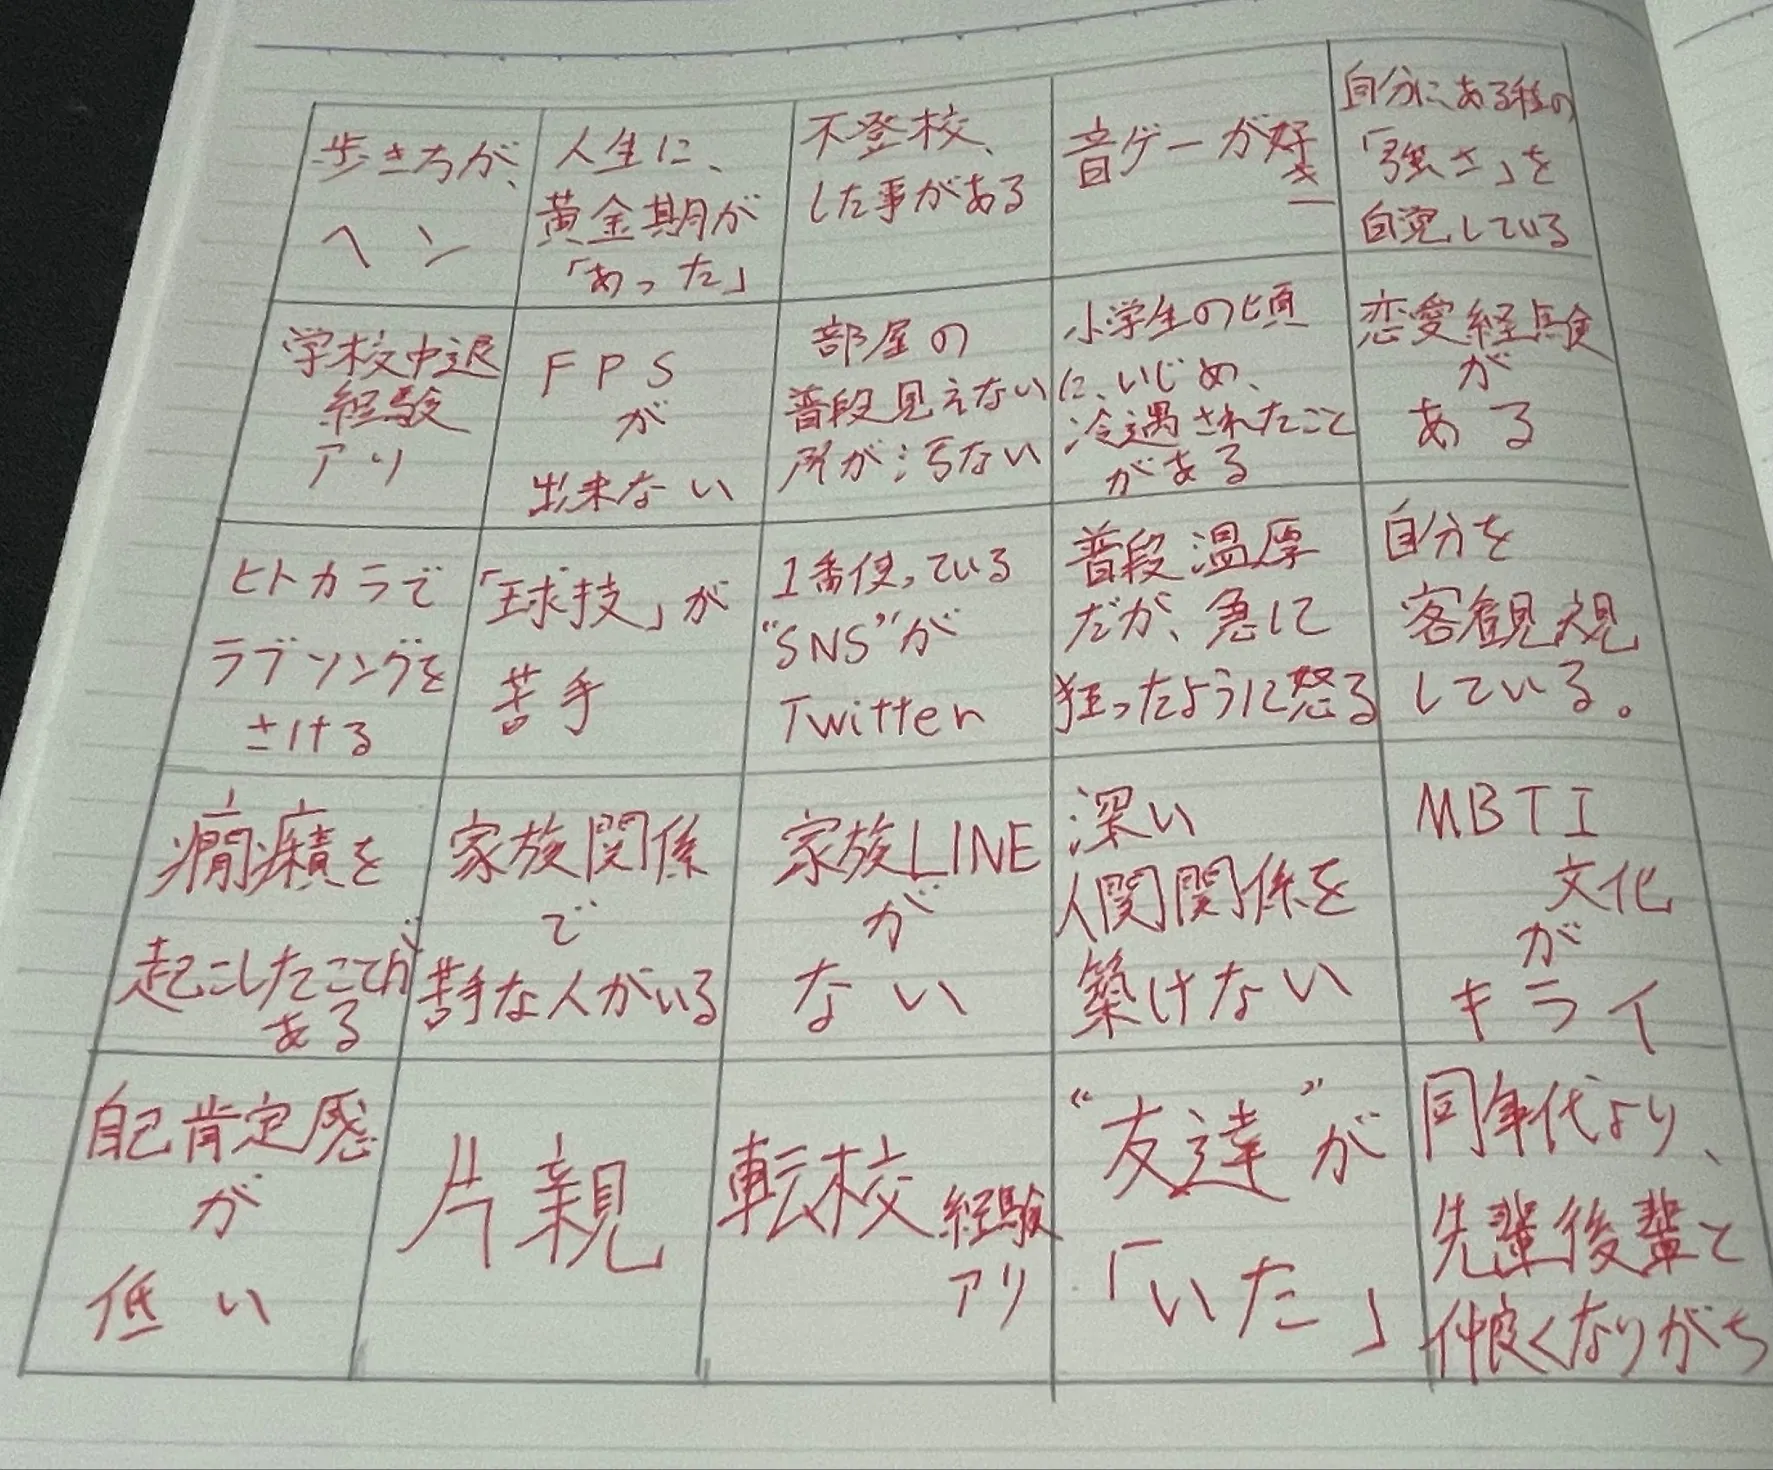 歩き方が、
ヘン
人生に、
黄金期が
「あった」
不登校、
した事がある
音ゲーが好
き
自分にある種の
「強さ」を
自覚している
学校中退
経験
アリ
FPS
が
出来ない
部屋の
普段見えない
所が汚ない
小学生の頃
に、いじめ、
冷遇されたこと
がある
恋愛経験
が
ある
ヒトカラで
ラブソングを
さける
「球技」が
苦手
1番使っている
“SNS”が
Twitter
普段温厚
だが、急に
狂ったように怒る
自分を
客観視
している。
癇癪を
起こしたことが
ある
家族関係
で
苦手な人がいる
家族LINE
が
ない
深い
人間関係を
築けない
MBTI
文化
が
キライ
自己肯定感
が
低い
片親
転校経験
アリ
“友達”が
「いた」
同年代より、
先輩後輩と
仲良くなりがち